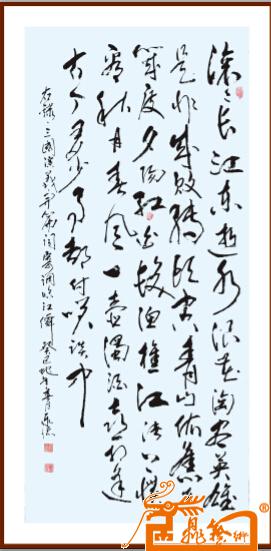 滚〻长江东逝水浪花淘尽英雄
是非成败转头空青山依旧在
几度夕阳红白发渔樵江渚上惯
看秋月春风一壶浊酒喜相逢
古今多少事都付笑谈中
右录三國演義开篇词寄调临江仙癸巳